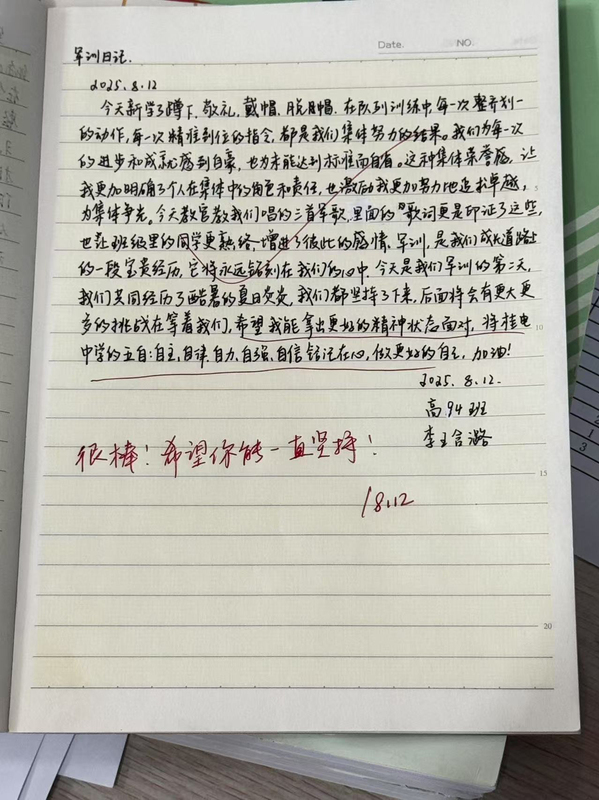 Date.
NO.
军训日记.
2025.8.12
今天新学了蹲下、敬礼、戴帽、脱帽.在队列训练中,每一次整齐划一
的动作,每一次精准到位的指令,都是我们集体努力的结果。我们为每一次
的进步和成就感到自豪,也为未能达到标准而自省。这种集体荣誉感,让
我更加明确了个人在集体中的角色和责任,也激励我更加努力地追求卓越,
为集体争光。今天教官教我们唱的三首军歌,里面的歌词更是印证了这些,
也让班级里的同学更熟络,增进了彼此的感情.军训,是我们成长道路上
的一段宝贵经历,它将永远铭刻在我们的心中.今天是我们军训的第二天,
我们共同经历了酷暑的夏日炎炎,我们都坚持了下来,后面将会有更大更
多的挑战在等着我们,希望我能拿出更好的精神状态面对,将桂电
中学的五自:自主,自律,自力,自强,自信铭记在心,做更好的自己,加油!
2025.8.12.
高94班
李王含潞
很棒!希望你能一直坚持!
18.12
5
10
15
20